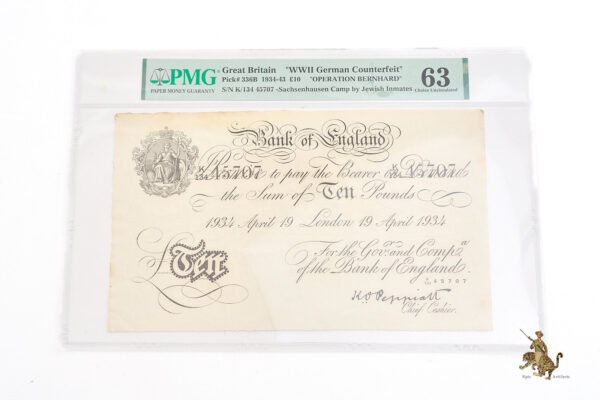 PMG
PAPER MONEY GUARANTY
Great Britain "WWII German Counterfeit"
Pick# 336B 1934-43 £10 "OPERATION BERNHARD"
S/N K/134 45707 -Sachsenhausen Camp by Jewish Inmates
63
Choice Uncirculated
Bank of England
K/134 45707 K/134 45707
Promise to pay the Bearer on Demand
the Sum of Ten Pounds
1934 April 19 London 19 April 1934
£Ten
For the Govr. and Compa.
of the Bank of England.
K/134 45707
K O Peppiatt
Chief Cashier.
Epic Artifacts